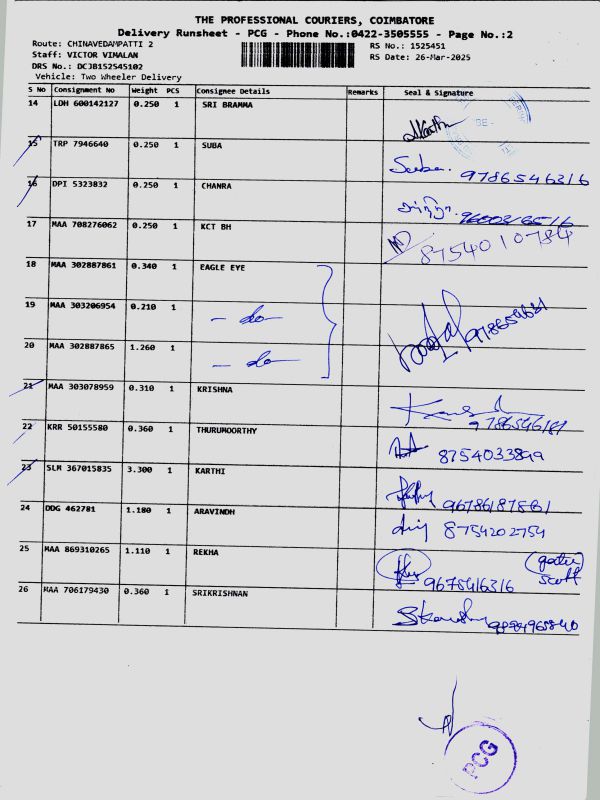 THE PROFESSIONAL COURIERS, COIMBATORE
Delivery Runsheet - PCG - Phone No.:0422-3505555 - Page No.:2
Route: CHINAVEDAMPATTI 2 RS No.: 1525451
Staff: VICTOR VIMALAN RS Date: 26-Mar-2025
DRS No.: DCJB152545102
Vehicle: Two Wheeler Delivery
S No Consignment No Weight PCS Consignee Details Remarks Seal & Signature
14 LDH 600142127 0.250 1 SRI BRAMMA
15 TRP 7946640 0.250 1 SUBA Suba. 9786546316
16 DPI 5323832 0.250 1 CHANRA
17 MAA 708276062 0.250 1 KCT BH 8754010784
18 MAA 302887861 0.340 1 EAGLE EYE
19 MAA 303206954 0.210 1 - do -
20 MAA 302887865 1.260 1 - do -
21 MAA 303078959 0.310 1 KRISHNA 9786546181
22 KRR 50155580 0.360 1 THURUMOORTHY 8754033899
23 SLM 367015835 3.300 1 KARTHI
24 DDG 462781 1.180 1 ARAVINDH 8754202754
25 MAA 869310265 1.110 1 REKHA 9675416316
26 MAA 706179430 0.360 1 SRIKRISHNAN
PCG